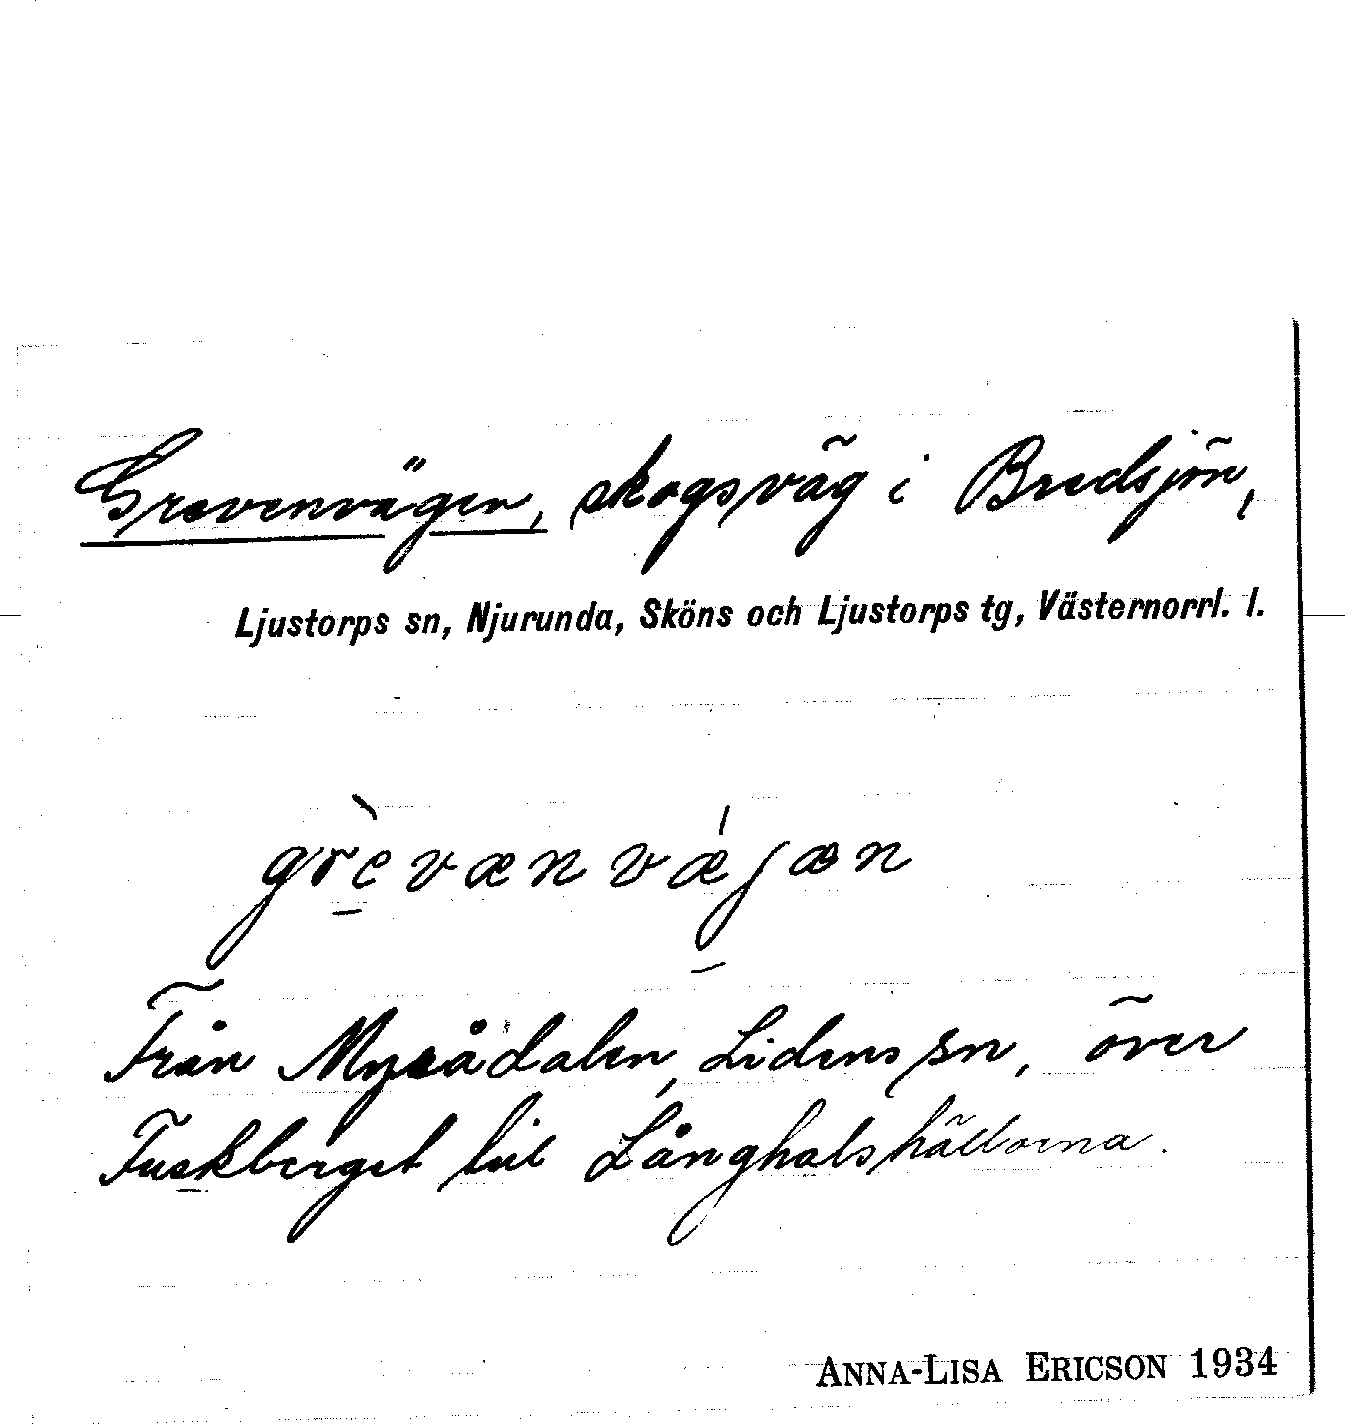 Grevenvägen, skogsväg i Bredsjön,
Ljustorps sn, Njurunda, Sköns och Ljustorps tg, Västernorrl. l.
grè̱vænvǽjæn
Från Myrådalen, Lidens sn, över
Tuskberget till Långhalshällorna.
ANNA-LISA ERICSON 1934